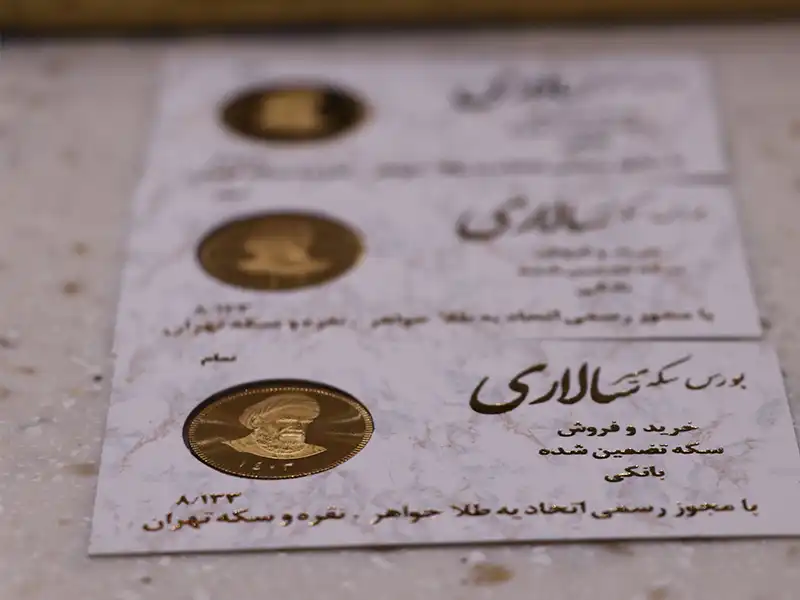 سالاری
بورس سکه سالاری
خرید و فروش
سکه تضمین شده
بانکی
۸/۱۳۳
با مجوز رسمی اتحادیه طلا جواهر ، نقره و سکه تهران
تمام
بورس سکه سالاری
خرید و فروش
سکه تضمین شده
بانکی
۱۴۰۳
۸/۱۳۳
با مجوز رسمی اتحادیه طلا جواهر ، نقره و سکه تهران